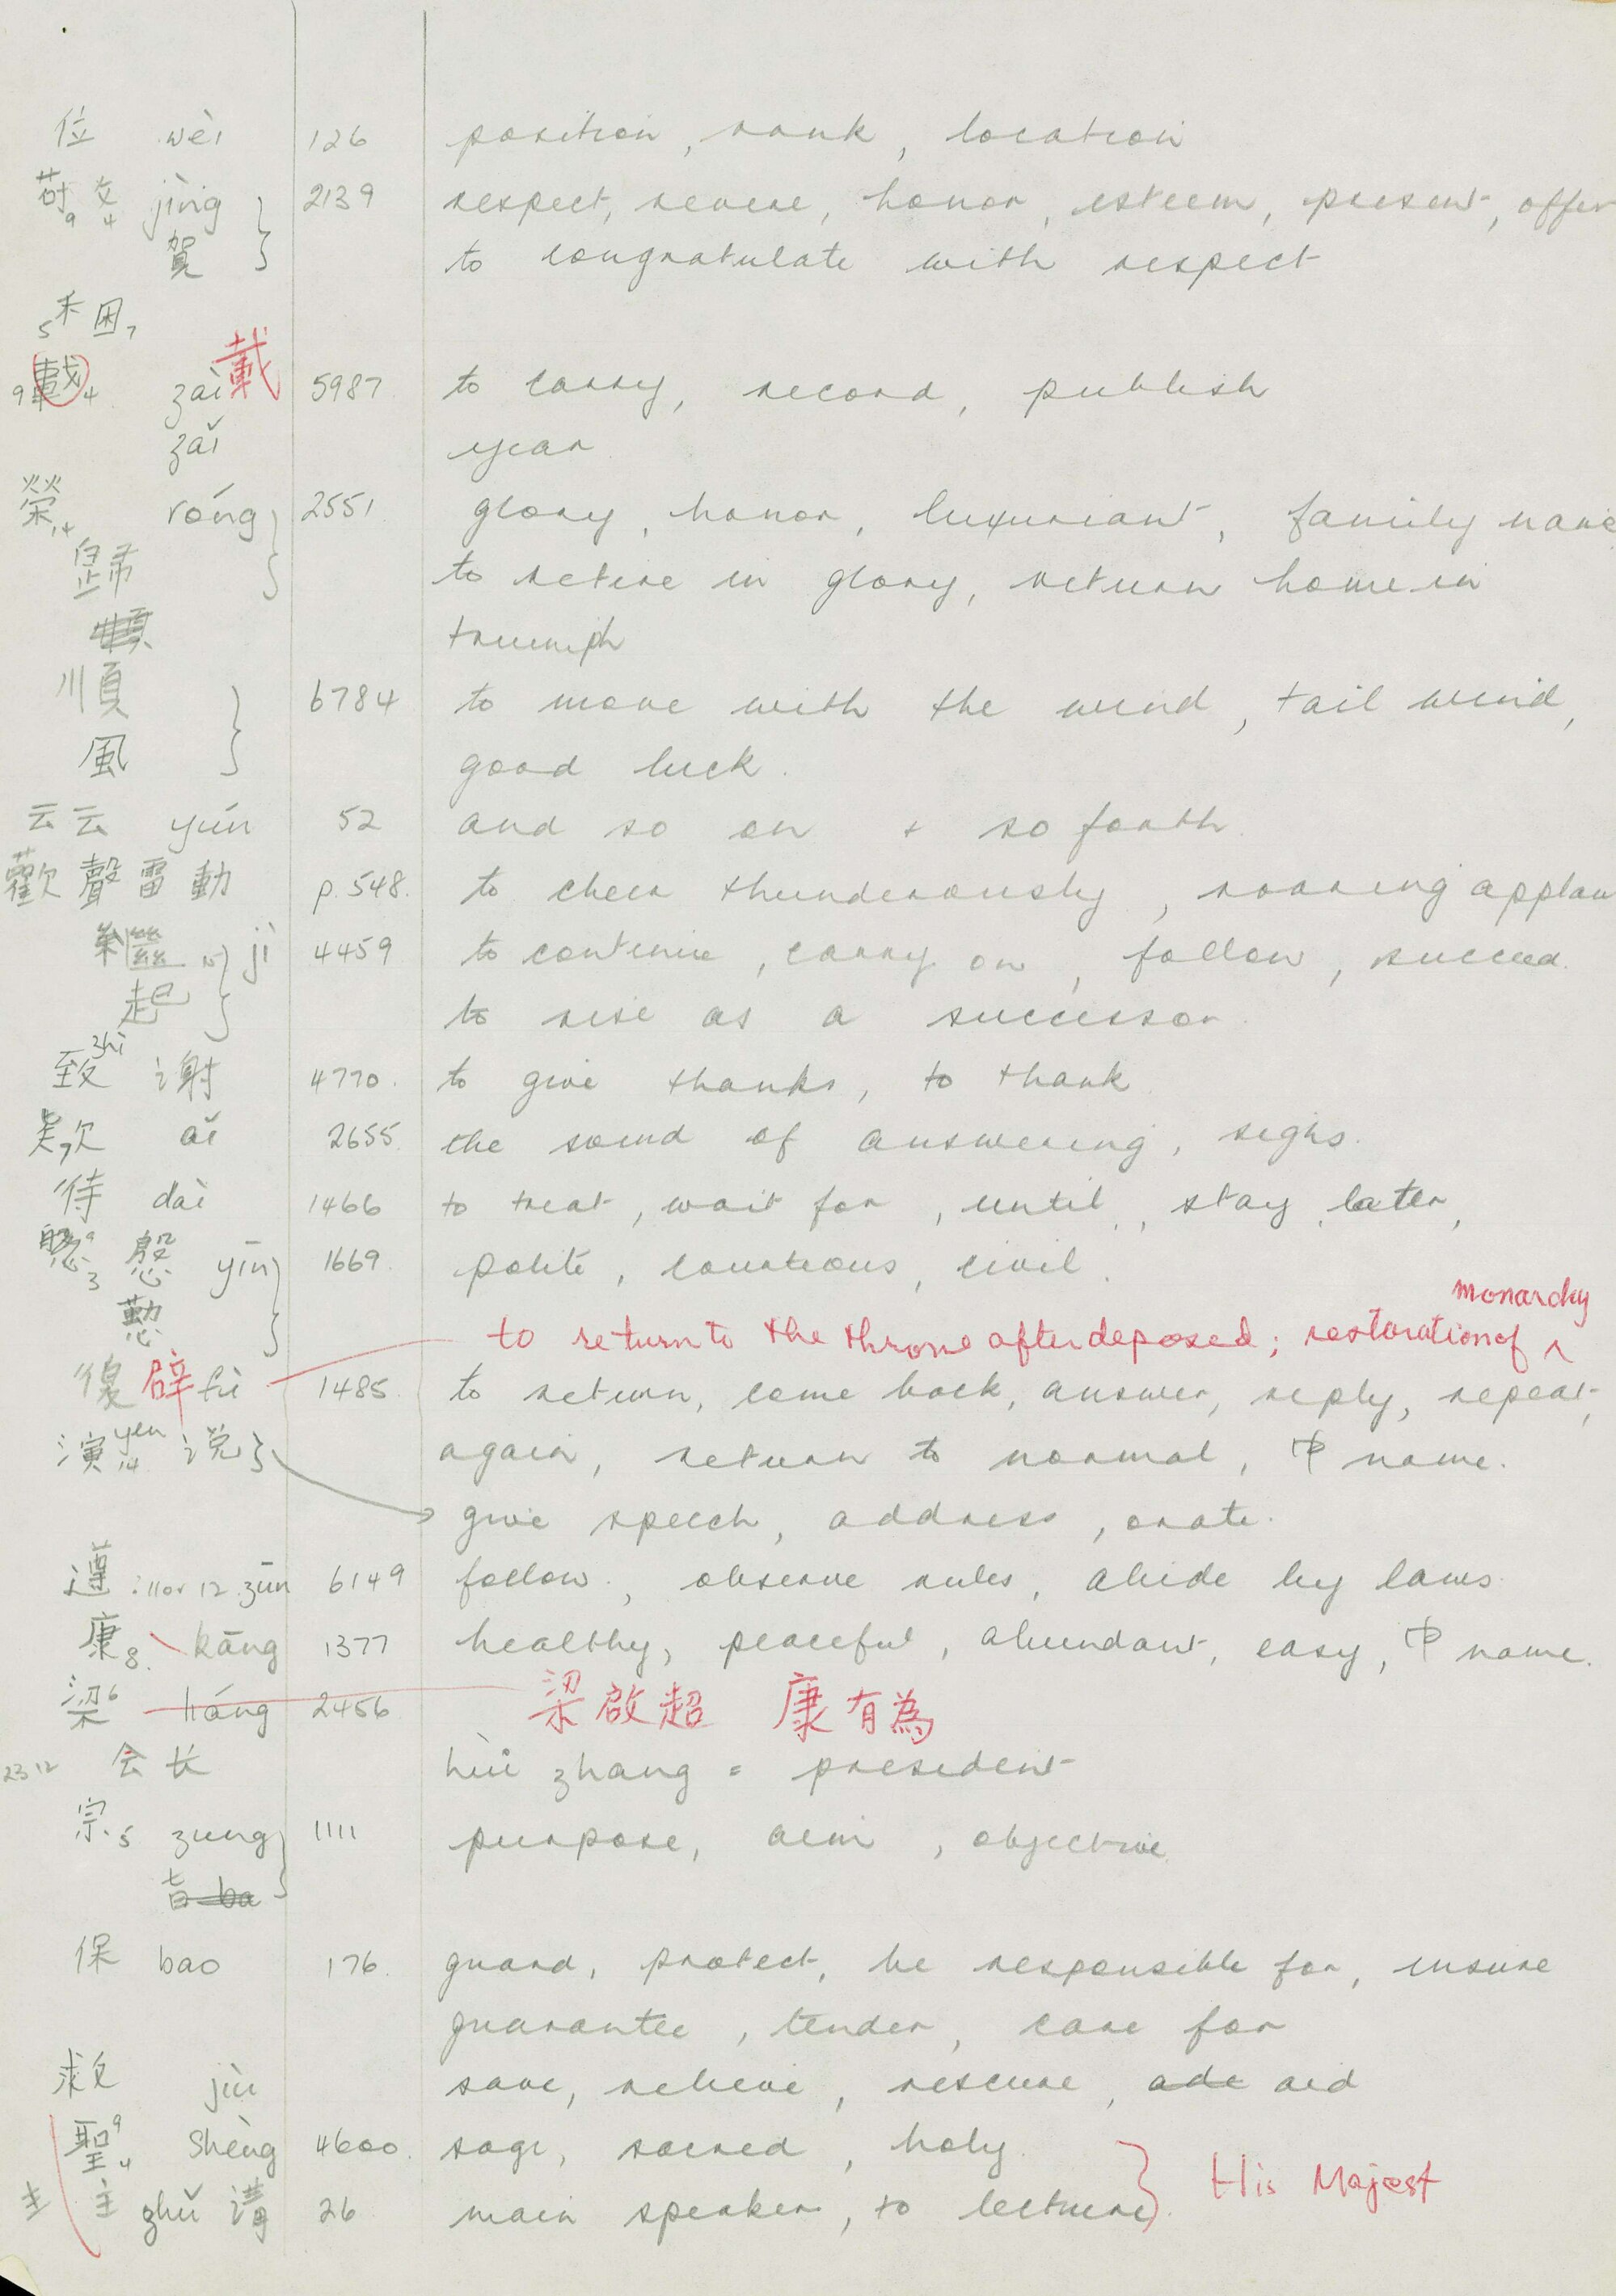 位 wèi 126 position, rank, location
苟9 攵4 jìng 2139 respect, revere, honor, esteem, present, offer
賀 to congratulate with respect
5禾 困7
9載4 zài 戴 5987 to carry, record, publish
zǎi year
榮14 róng 2551 glory, honor, luxuriant, family name
歸 to retire in glory, return home in
triumph
順 6784 to move with the wind, tail wind,
風 good luck.
云云 yún 52 and so on + so forth.
歡聲雷動 p.548. to cheer thunderously, roaring applau
繼15 jì 4459 to continue, carry on, follow, succeed.
起 to rise as a successor
致 zhì 謝 4770. to give thanks, to thank
欸7 ǎi 2655. the sound of answering, sighs.
待 dài 1466 to treat, wait for, until, stay, later,
慇 yīn 1669. polite, courteous, civil.
懃
monarchy
to return to the throne after deposed; restoration of ^
復 辟 fù 1485 to return, come back, answer, reply, repeat,
演 yen 14 说 again, return to normal, 中 name.
give speech, address, orate.
遵:11 or 12 zūn 6149 follow, observe rules, abide by laws
康8. kāng 1377 healthy, peaceful, abundant, easy, 中 name.
梁6 liáng 2456 梁啟超 康有為
23 12 会长 hùi zhang = president
宗.5 zung 1111 purpose, aim, objective.
旨 ba
保 bao 176. guard, protect, be responsible for, insure
guarantee, tender, care for
救 jiù save, relieve, rescue, ade aid
聖9 4 shèng 4600. sage, sacred, holy. His Majest
主 主 zhǔ 講 26 main speaker, to lecture